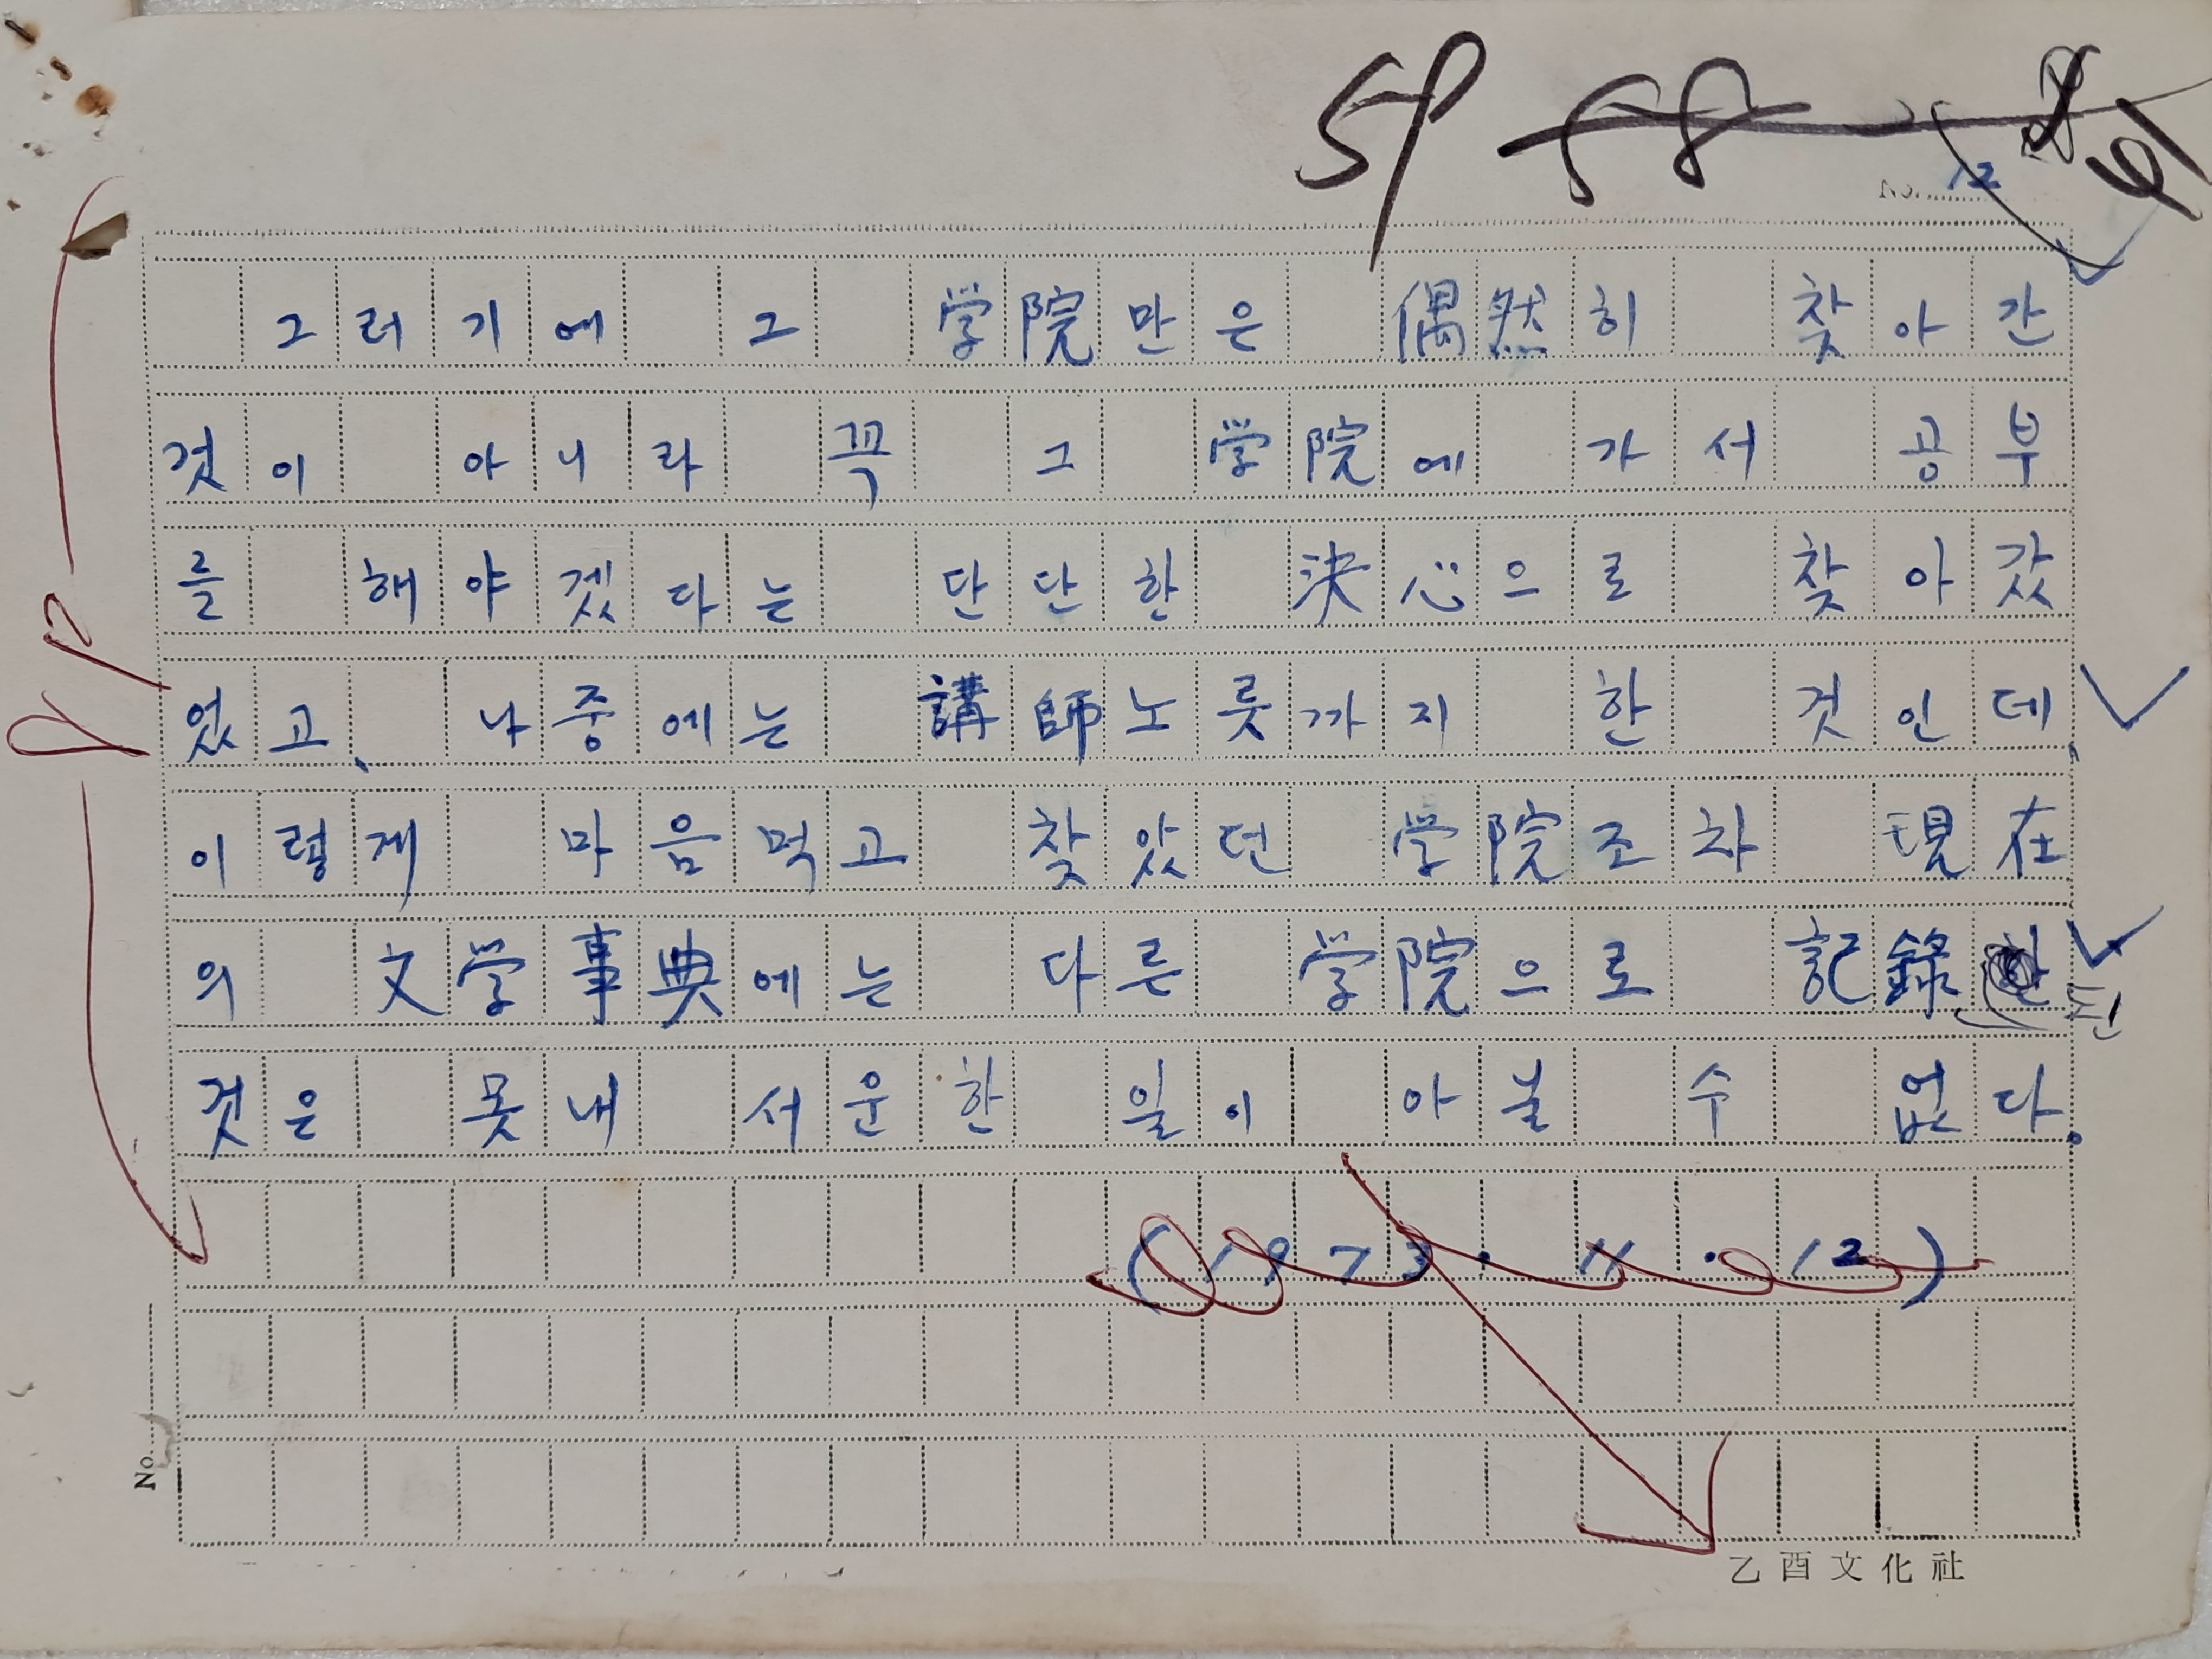 59 58
No. 12
그러기에 그 学院만은 偶然히 찾아간
것이 아니라 꼭 그 学院에 가서 공부
를 해야겠다는 단단한 決心으로 찾아갔
었고、 나중에는 講師노릇까지 한 것인데、
이렇게 마음먹고 찾았던 学院조차 現在
의 文学事典에는 다른 学院으로 記錄된
것은 못내 서운한 일이 아닐 수 없다。
(1973. 11. 12)
No.
乙酉文化社